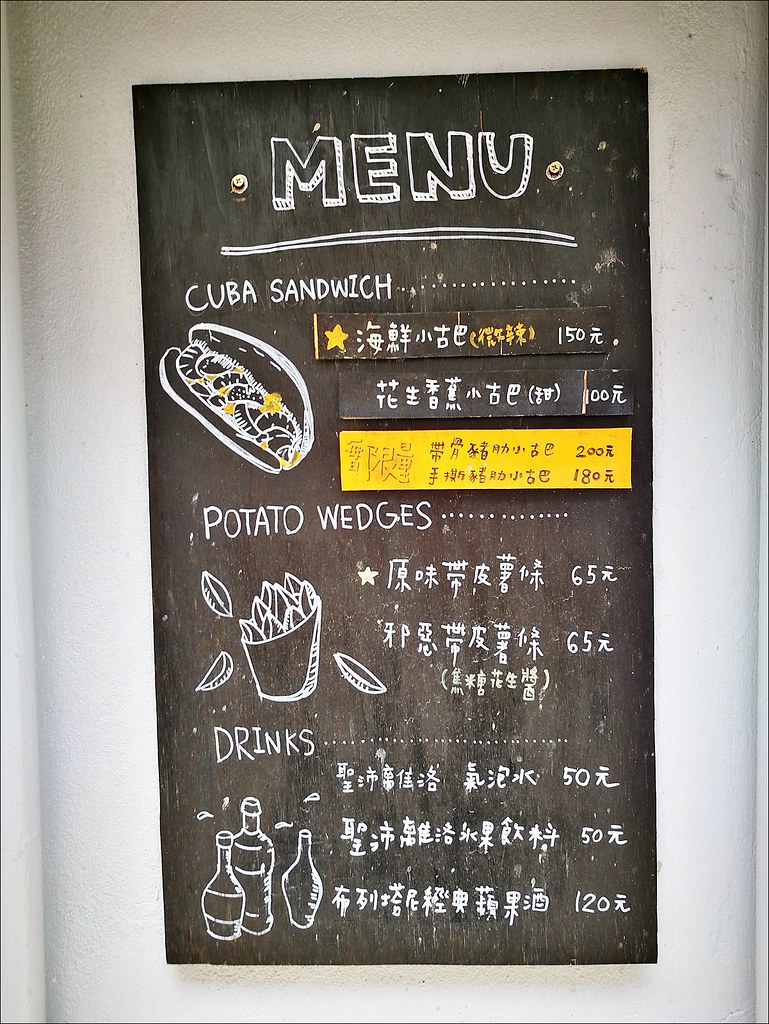 MENU
CUBA SANDWICH
海鮮小古巴(微辣) 150元
花生香蕉小古巴(甜) 100元
限量 帶骨豬肋小古巴 200元
手撕豬肋小古巴 180元
POTATO WEDGES
原味帶皮薯條 65元
邪惡帶皮薯條 65元
(焦糖花生醬)
DRINKS
聖沛離洛 氣泡水 50元
聖沛離洛水果飲料 50元
布列塔尼經典蘋果酒 120元